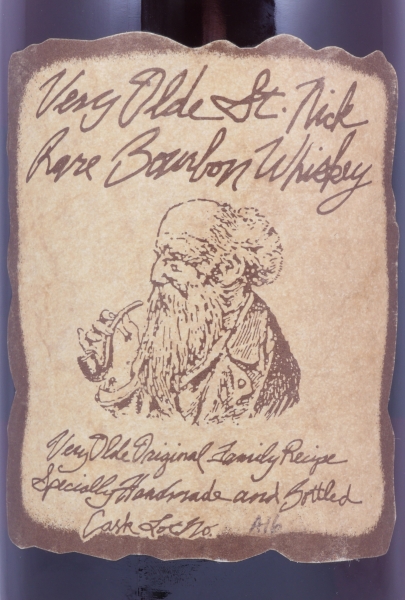 Very Olde St. Nick
Rare Bourbon Whiskey
Very Olde Original Family Recipe
Specially Handmade and Bottled
Cask Lot No. A16